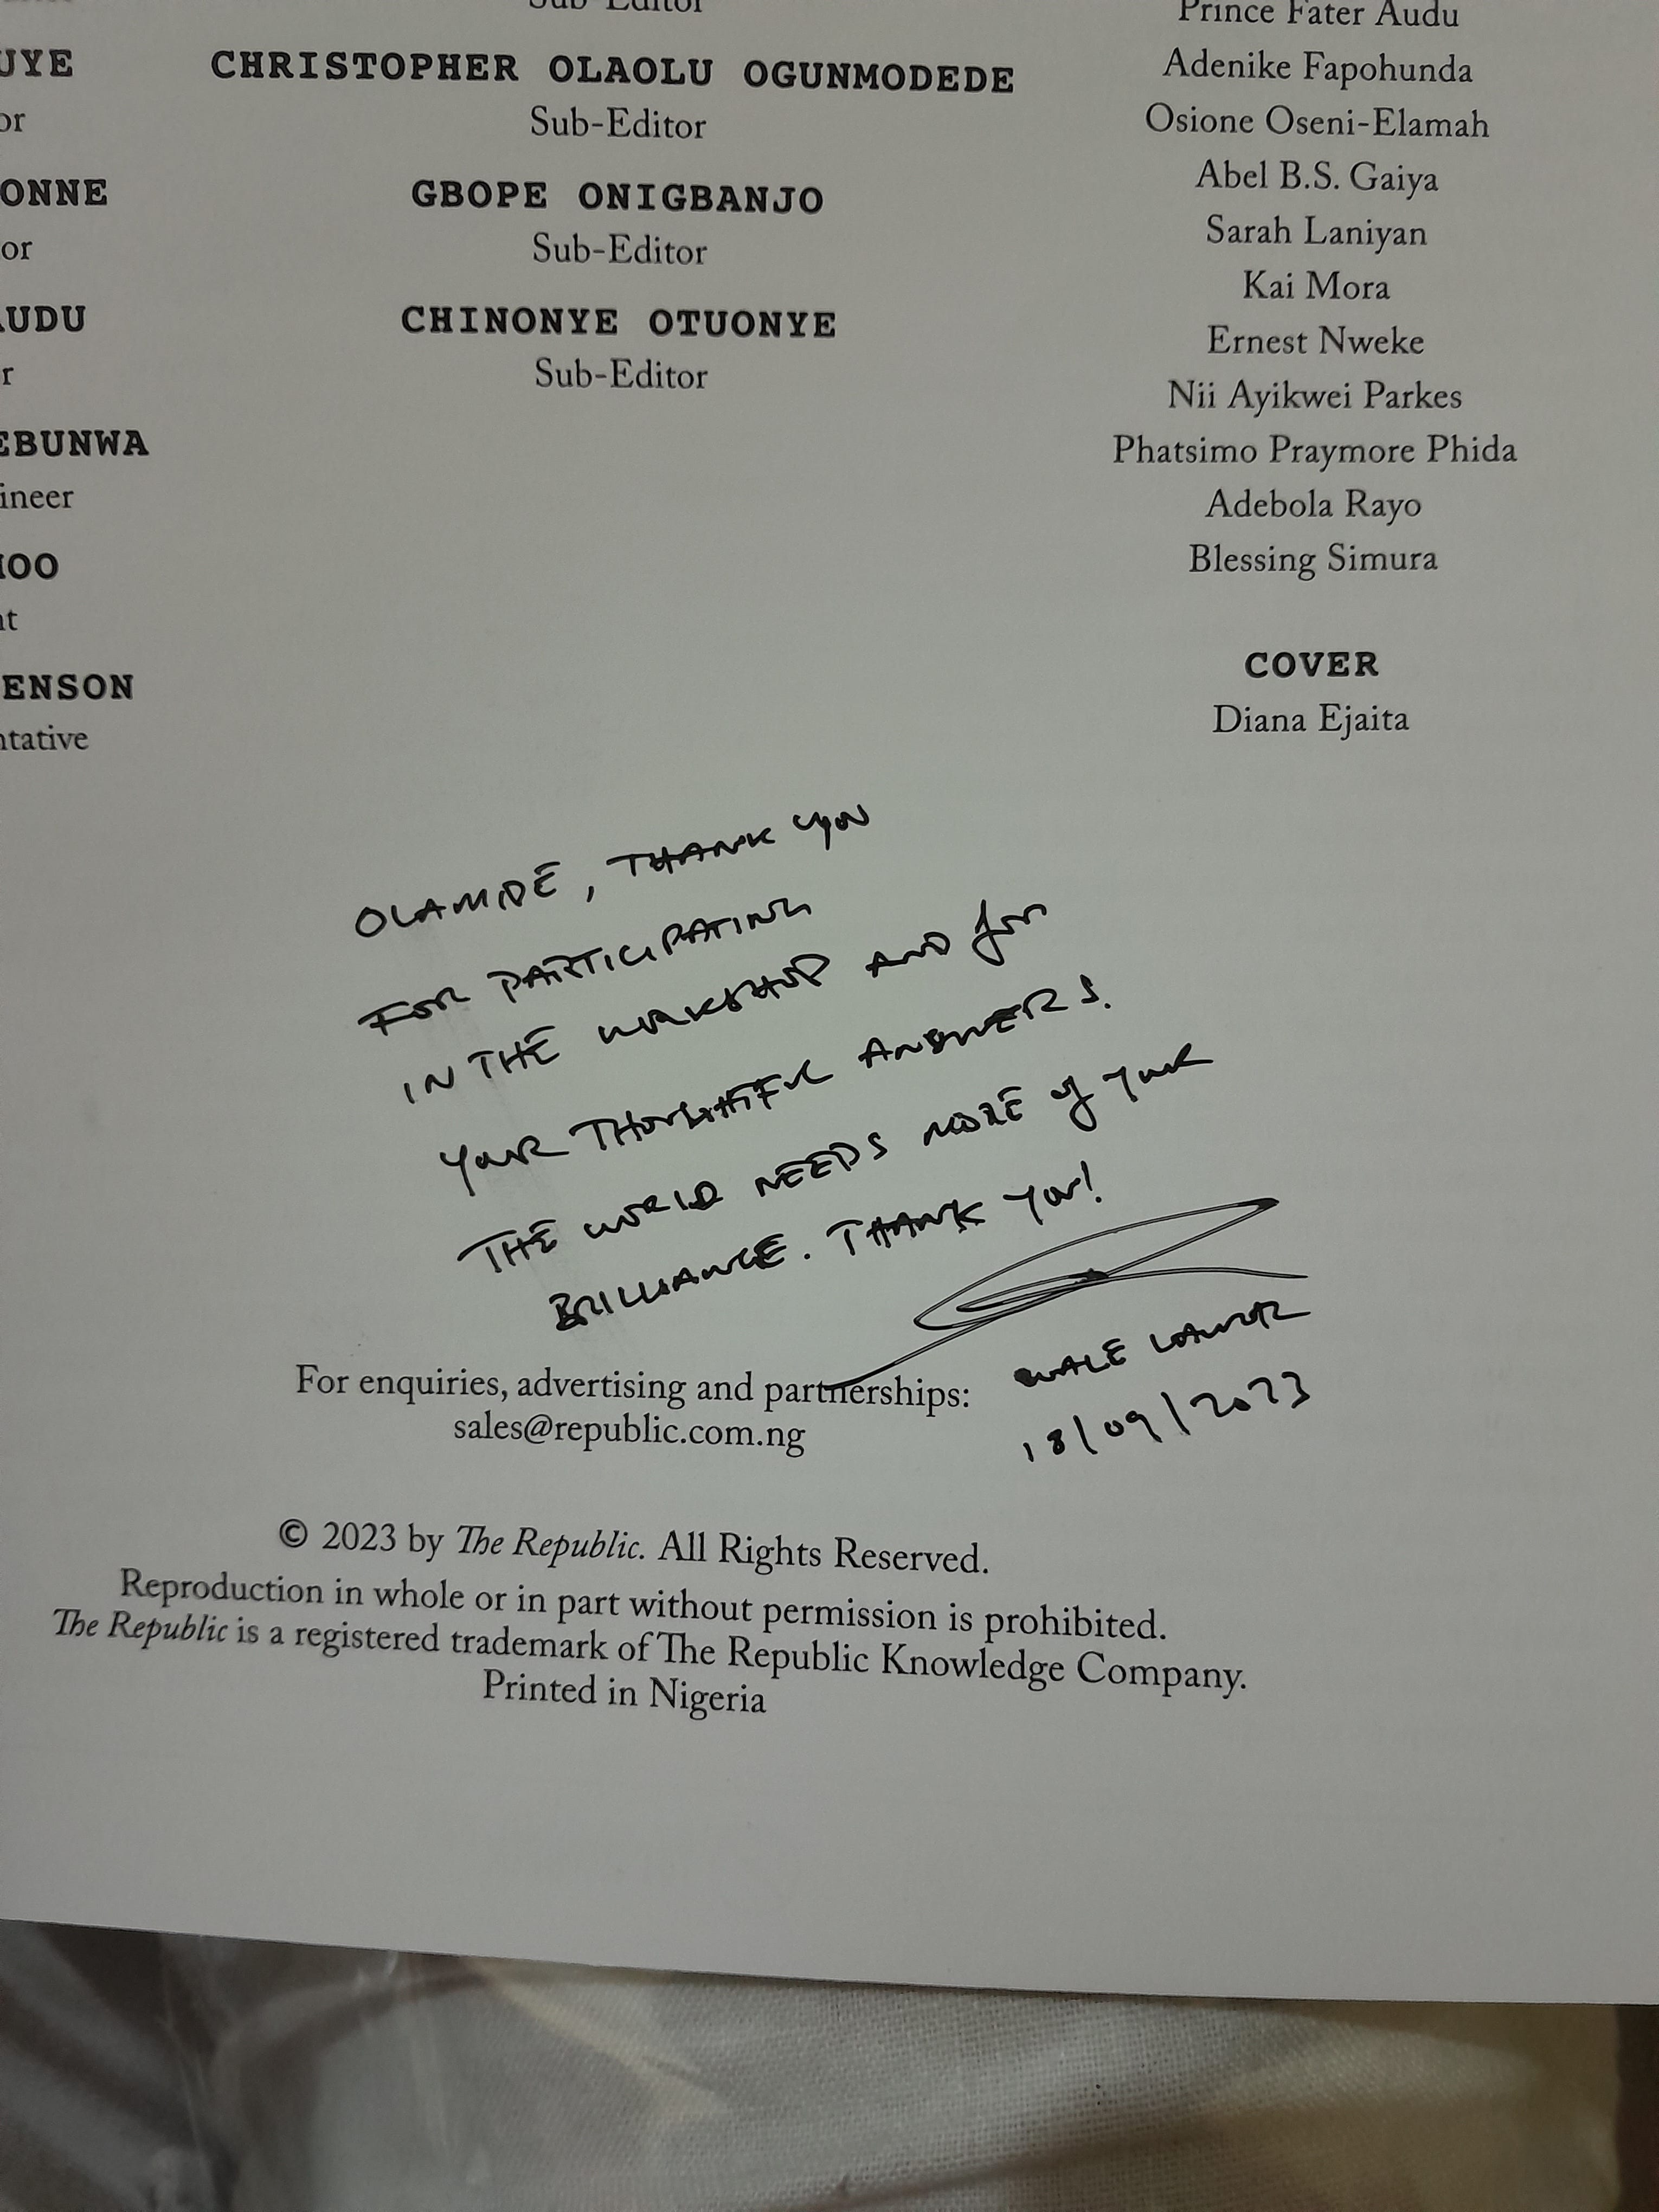 Sub-Editor
CHRISTOPHER OLAOLU OGUNMODEDE
Sub-Editor
GBOPE ONIGBANJO
Sub-Editor
CHINONYE OTUONYE
Sub-Editor
UYE
or
ONNE
or
AUDU
r
EBUNWA
ineer
HOO
nt
ENSON
ntative
Prince Fater Audu
Adenike Fapohunda
Osione Oseni-Elamah
Abel B.S. Gaiya
Sarah Laniyan
Kai Mora
Ernest Nweke
Nii Ayikwei Parkes
Phatsimo Praymore Phida
Adebola Rayo
Blessing Simura
COVER
Diana Ejaita
OLAMIDE, THANK YOU
FOR PARTICIPATING
IN THE WORKSHOP AND for
YOUR THOUGHTFUL ANSWERS.
THE WORLD NEEDS MORE of YOUR
BRILLIANCE. THANK YOU!
WALE LAWAL
18/09/2023
For enquiries, advertising and partnerships:
sales@republic.com.ng
© 2023 by The Republic. All Rights Reserved.
Reproduction in whole or in part without permission is prohibited.
The Republic is a registered trademark of The Republic Knowledge Company.
Printed in Nigeria